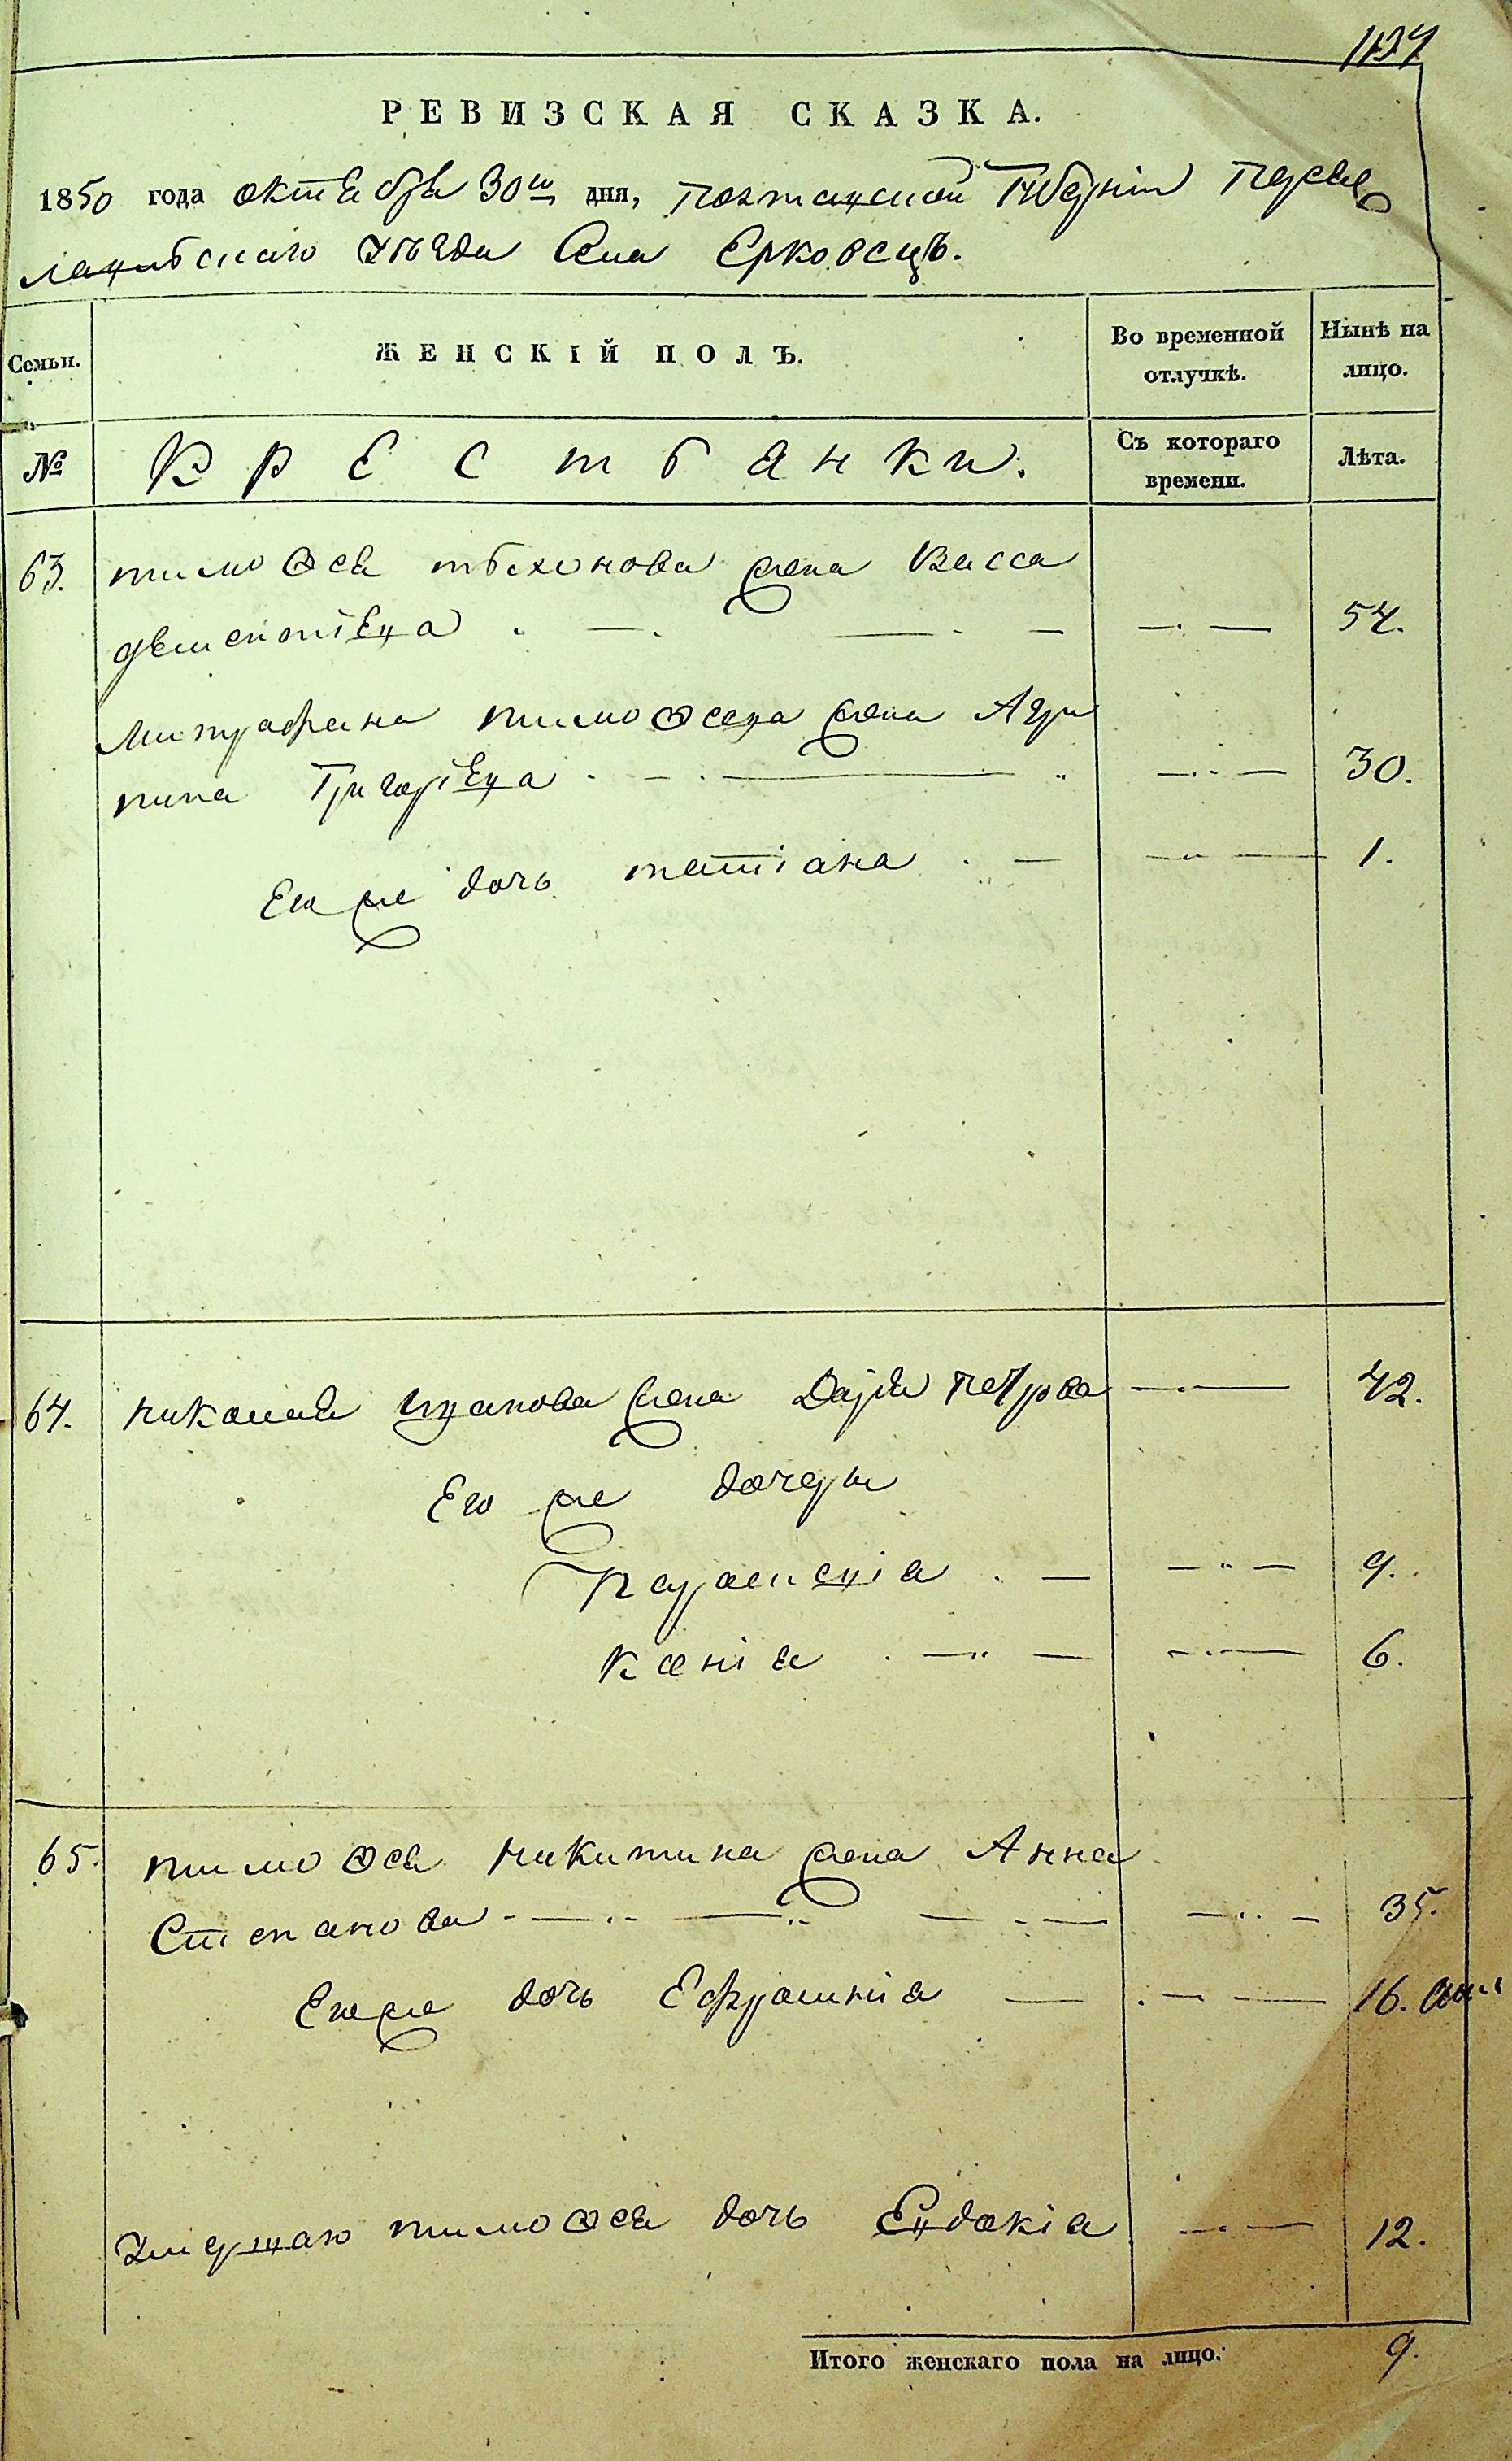 1137
РЕВИЗСКАЯ СКАЗКА.
1850 года октября 30го дня, Полтавской Губерніи Переяс
лавскаго уѣзда Села Ерковецъ.
Семьи.
ЖЕНСКІЙ ПОЛЪ.
Во временной отлучкѣ.
Нынѣ на лицо.
№
Крестьянки.
Съ котораго времени.
Лѣта.
63. тимоѳея тихонова жена Васса
дементіева 54.
митрофана тимоѳеева жена Агри
пина Григорієва 30.
Его же дочь татіана 1.
64. николая иванова жена Дарья петрова 42.
Его же дочери
параскевіа 9.
ксенія 6.
65. тимоѳея никитина жена Анна
Степанова 35.
Его же дочь Ефросинія 16.
умершаго тимоѳея дочь Евдокіа 12.
Итого женскаго пола на лицо: 9.